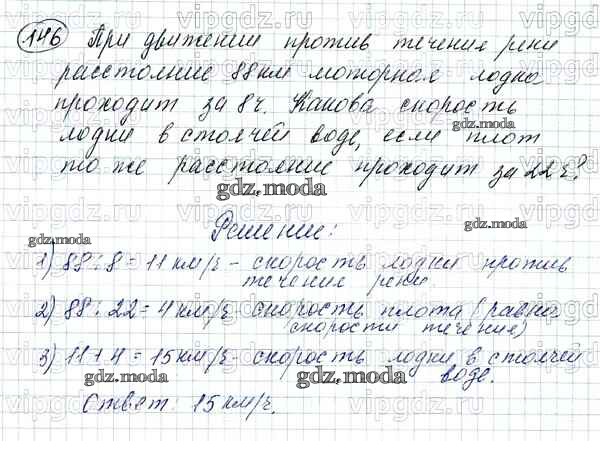 146 При движении против течения реки
расстояние 88 км моторная лодка
проходит за 8ч. Какова скорость
лодки в стоячей воде, если плот
то же расстояние проходит за 22ч?
Решение:
1) 88 : 8 = 11 км/ч - скорость лодки против
течения реки.
2) 88 : 22 = 4 км/ч - скорость плота (равна
скорости течения)
3) 11 + 4 = 15 км/ч - скорость лодки в стоячей
воде.
Ответ: 15 км/ч.
gdz.moda
gdz.moda
gdz.moda
gdz.moda
gdz.moda
gdz.moda
vipgdz.ru